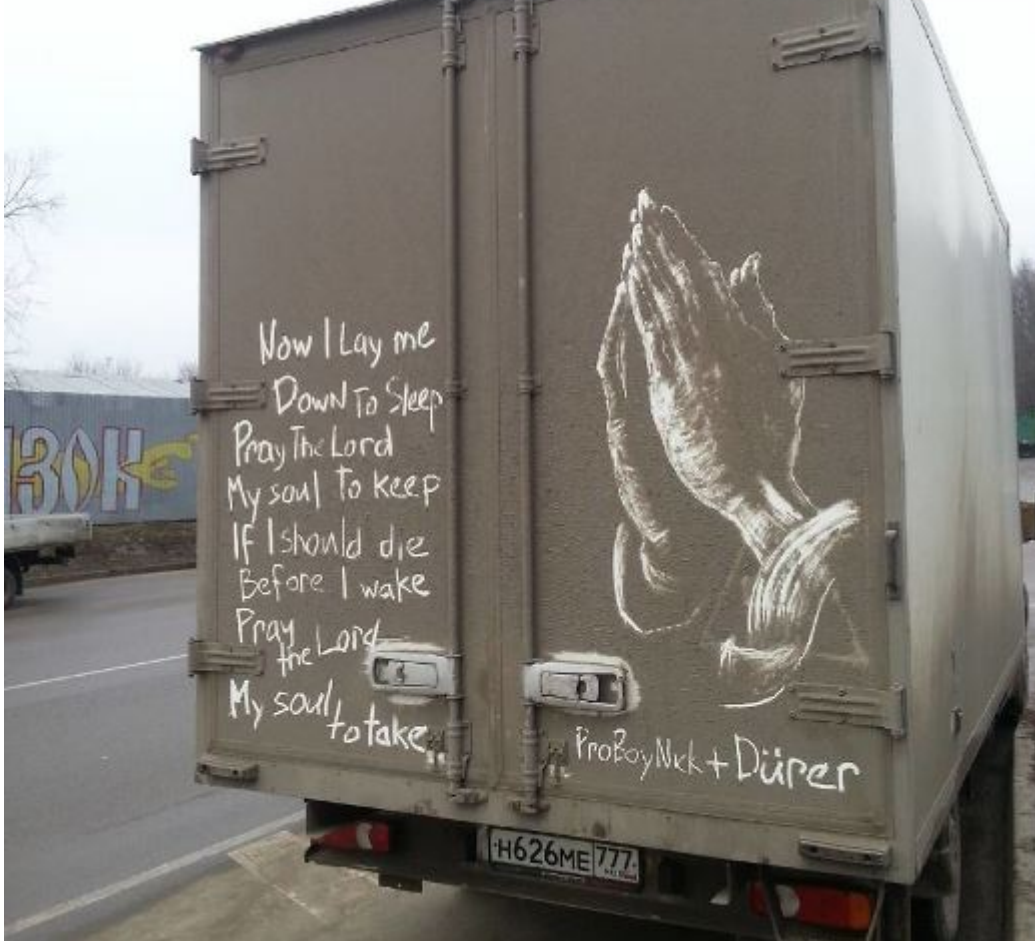 Now I Lay me
Down To Sleep
Pray The Lord
My soul To keep
If I should die
Before I wake
Pray
the Lord
My soul
to take
ProBoyNick + Dürer
Н626МЕ 777
ЗОК